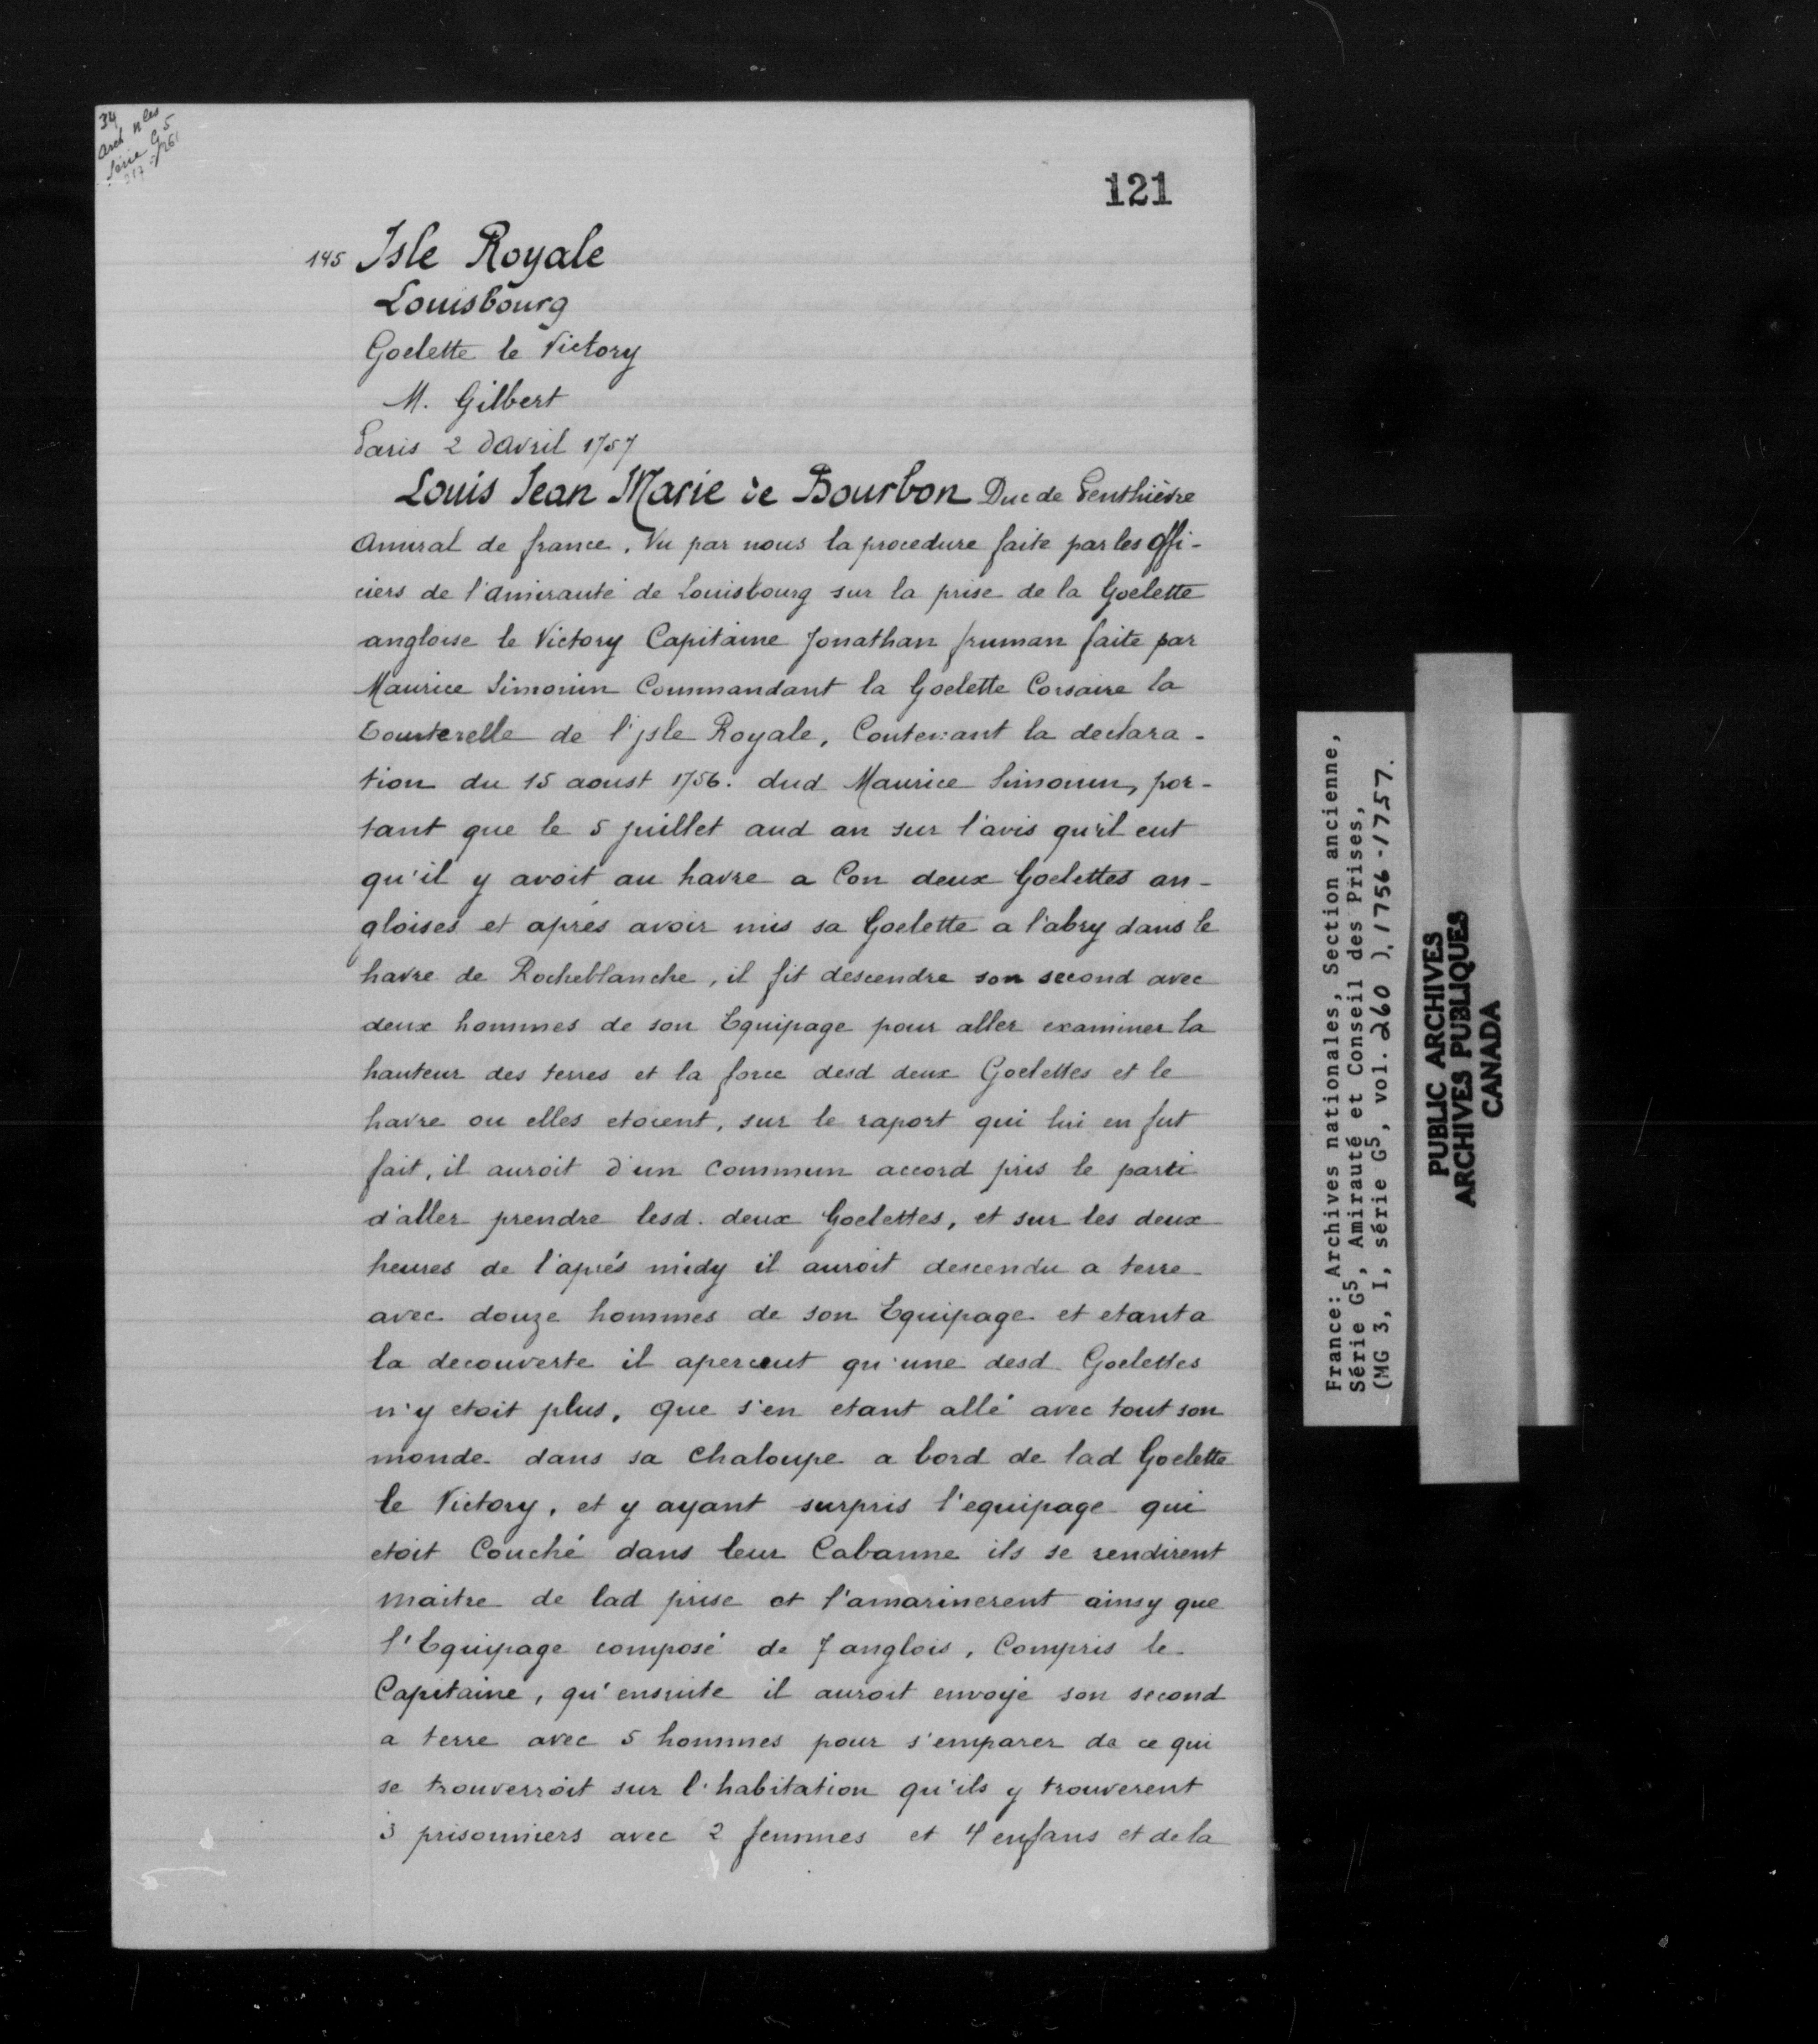 34
Arch nles
Série G5
121
145 Isle Royale
Louisbourg
Goelette le Victory
M. Gilbert
Paris 2 d'avril 1757
Louis Jean Marie de Bourbon Duc de Penthièvre
amiral de france. Vu par nous la procedure faite par les offi-
ciers de l'amirauté de Louisbourg sur la prise de la Goelette
angloise le Victory Capitaine Jonathan fruman faite par
Maurice Simonin Commandant la Goelette Corsaire la
tourterelle de l'isle Royale, Contenant la declara-
tion du 15 aoust 1756. dud Maurice Simonin, por-
tant que le 5 juillet aud an sur l'avis qu'il eut
qu'il y avoit au havre a Con deux Goelettes an-
gloises et aprés avoir mis sa Goelette a l'abry dans le
havre de Rocheblanche, il fit descendre son second avec
deux hommes de son Equipage pour aller examiner la
hauteur des terres et la force desd deux Goelettes et le
havre ou elles etoient, sur le raport qui lui en fut
fait, il auroit d'un commun accord pris le parti
d'aller prendre lesd. deux Goelettes, et sur les deux
heures de l'aprés midy il auroit descendu a terre
avec douze hommes de son Equipage et etant a
la decouverte il apercut qu'une desd Goelettes
n'y etoit plus, que s'en etant allé avec tout son
monde dans sa chaloupe a bord de lad Goelette
le Victory, et y ayant surpris l'equipage qui
etoit Couché dans leur Cabanne ils se rendirent
maitre de lad prise et l'amarinerent ainsy que
l'Equipage composé de 7 anglois, Compris le
Capitaine, qu'ensuite il auroit envoyé son second
a terre avec 5 hommes pour s'emparer de ce qui
se trouverroit sur l'habitation qu'ils y trouverent
3 prisonniers avec 2 femmes et 4 enfans et de la
France: Archives nationales, Section ancienne,
Série G5, Amirauté et Conseil des Prises,
(MG 3, I, série G5, vol. 260 ), 1756-1757.
PUBLIC ARCHIVES
ARCHIVES PUBLIQUES
CANADA